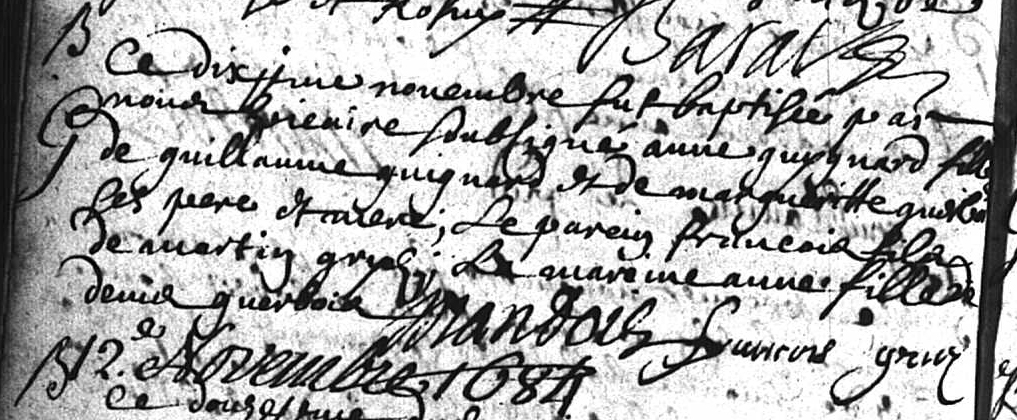 B
Ce dixiesme novembre fut baptisée par
nous vicaire soubsigné anne guignard fille
de guillaume guignard et de margueritte querboi
ses pere et mere; Le parein francois fils
de martin; La mareine anne fille de
denis querbois francois
B 12e Novembre 1684
Ce douzesme